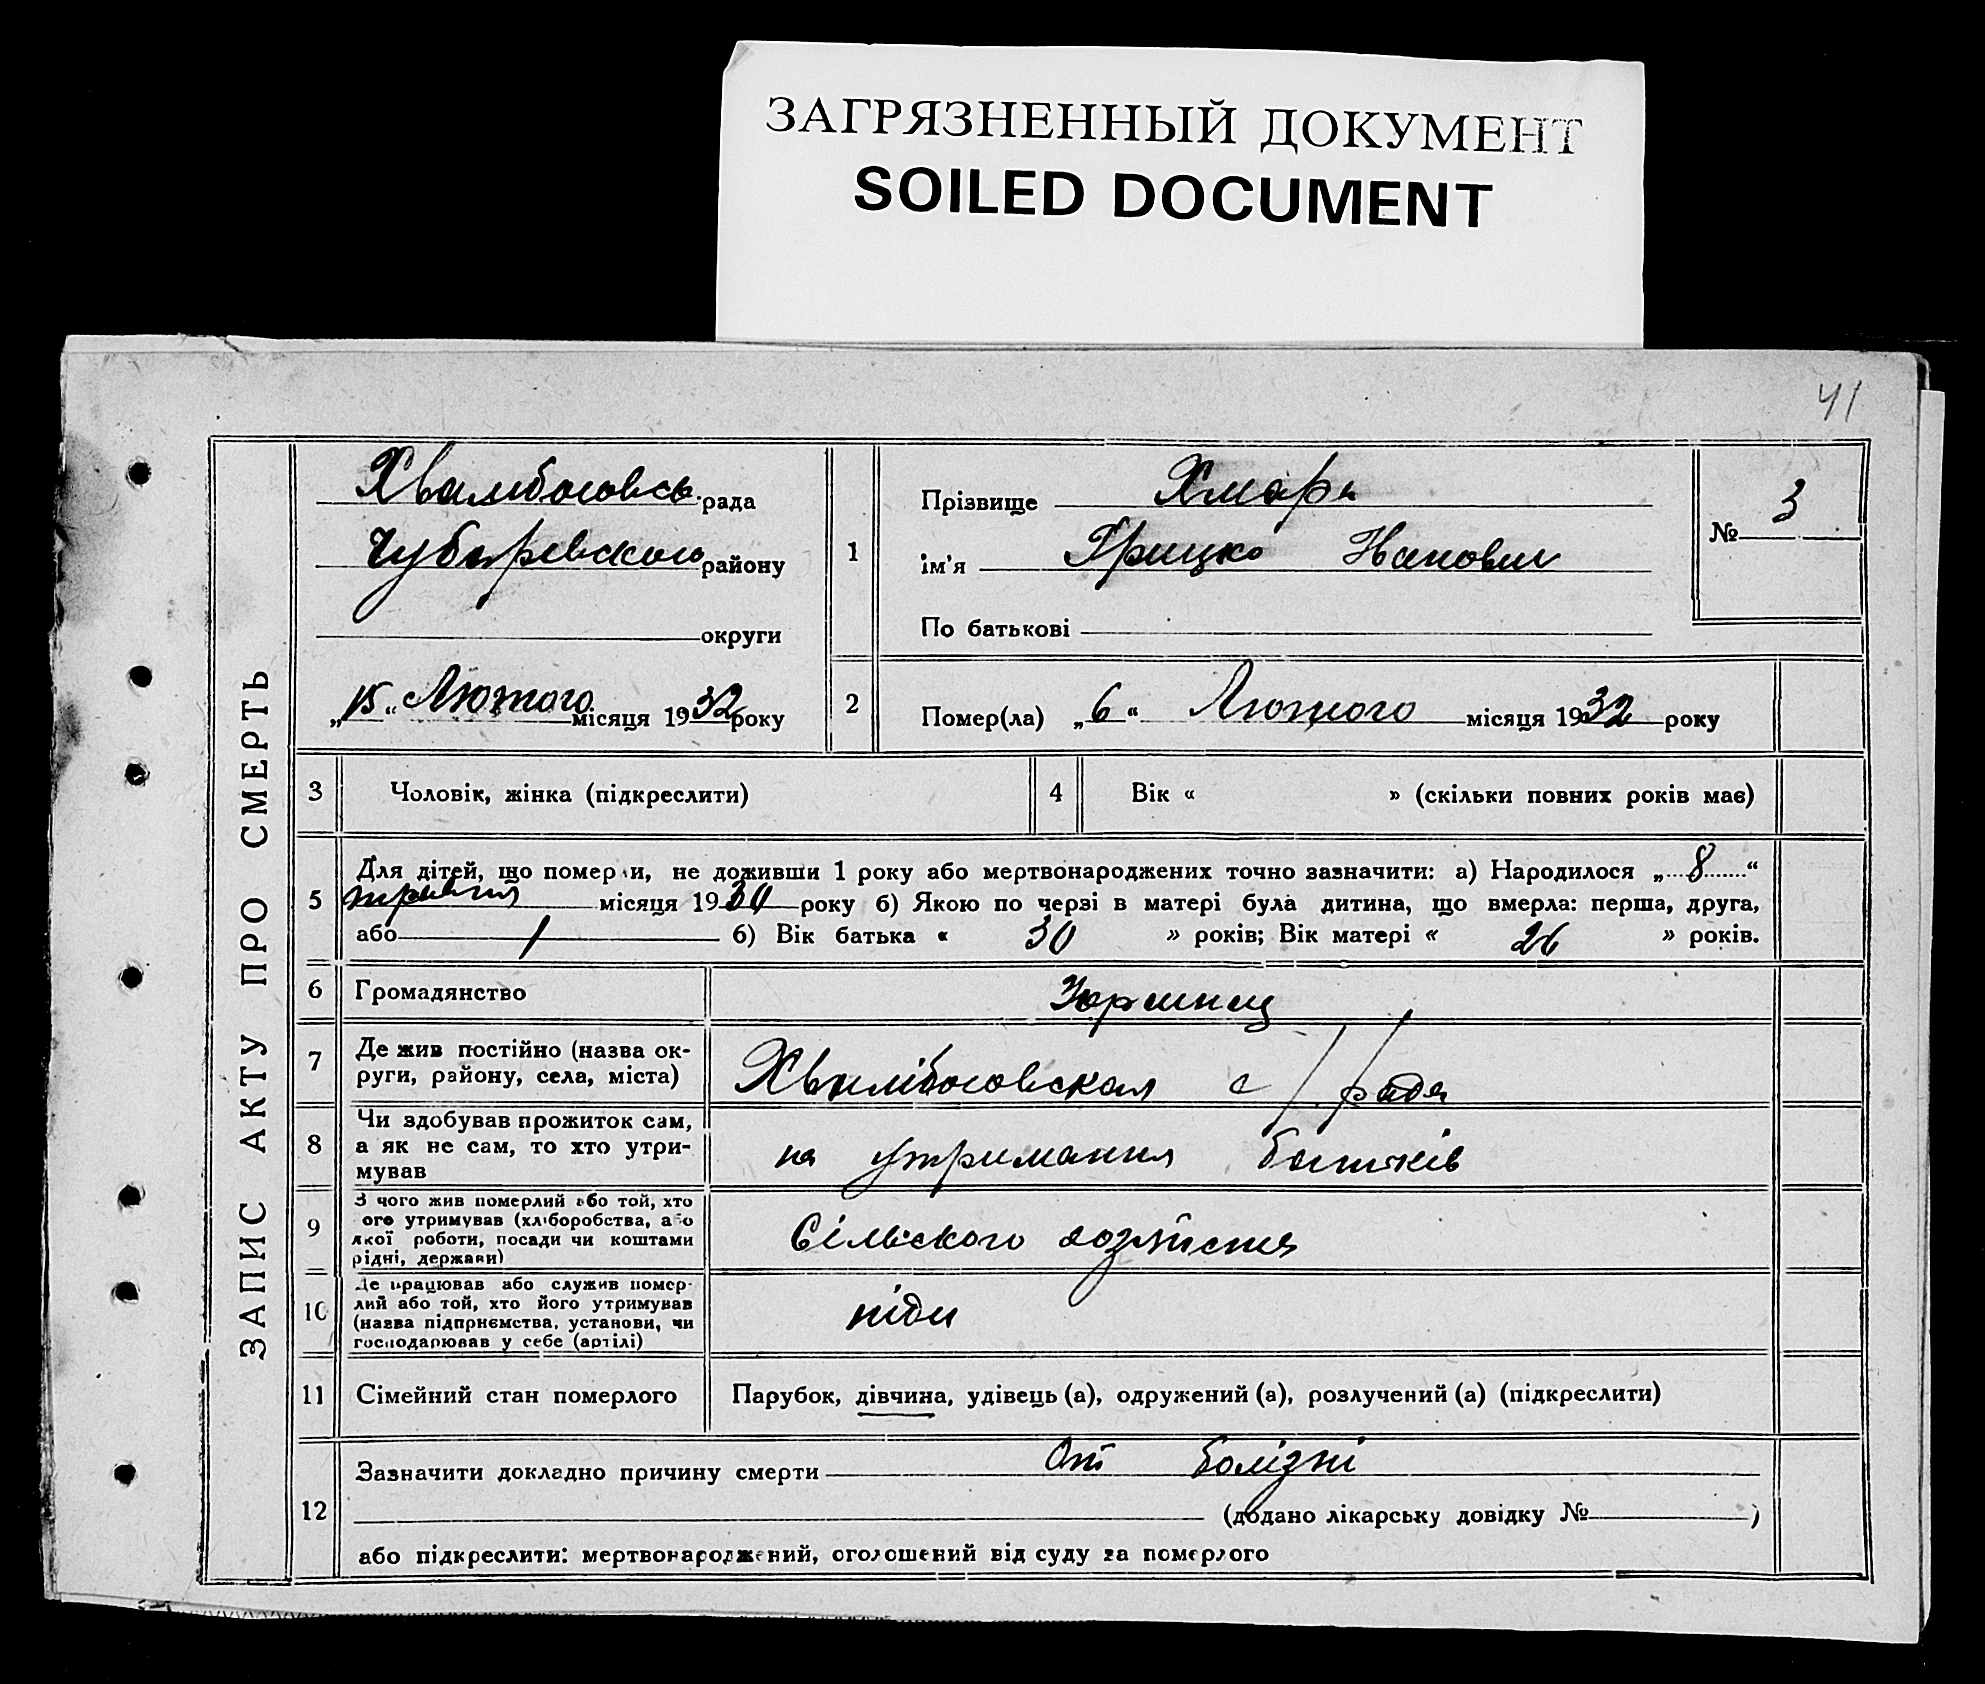 ЗАГРЯЗНЕННЫЙ ДОКУМЕНТ
SOILED DOCUMENT
41
ЗАПИС АКТУ ПРО СМЕРТЬ
Хвалибоговсь. рада
Чубаревского району
округи
„15“ Лютого місяця 1932 року
1
Прізвище Хмара
ім'я Грицко
По батькові
№ 3
2
Помер(ла) „6“ Лютого місяця 1932 року
3
Чоловік, жінка (підкреслити)
4
Вік « » (скільки повних років має)
5
Для дітей, що померли, не доживши 1 року або мертвонароджених точно зазначити: а) Народилося „8“
травня місяця 1930 року б) Якою по черзі в матері була дитина, що вмерла: перша, друга,
або 1 б) Вік батька « 30 » років; Вік матері « 26 » років.
6
Громадянство
7
Де жив постійно (назва ок-
руги, району, села, міста)
Хвалібоговская с/рада
8
Чи здобував прожиток сам,
а як не сам, то хто утри-
мував
на утримання батьків
9
З чого жив померлий або той, хто
ого утримував (хліборобства, або
якої роботи, посади чи коштами
рідні, держави)
Сільского хозяйства
10
Де працював або служив помер-
лий або той, хто його утримував
(назва підприємства, установи, чи
господарював у себе (артілі)
11
Сімейний стан померлого
Парубок, дівчина, удівець (а), одружений (а), розлучений (а) (підкреслити)
12
Зазначити докладно причину смерти От болізні
(додано лікарську довідку № )
або підкреслити: мертвонароджений, оголошений від суду за померлого